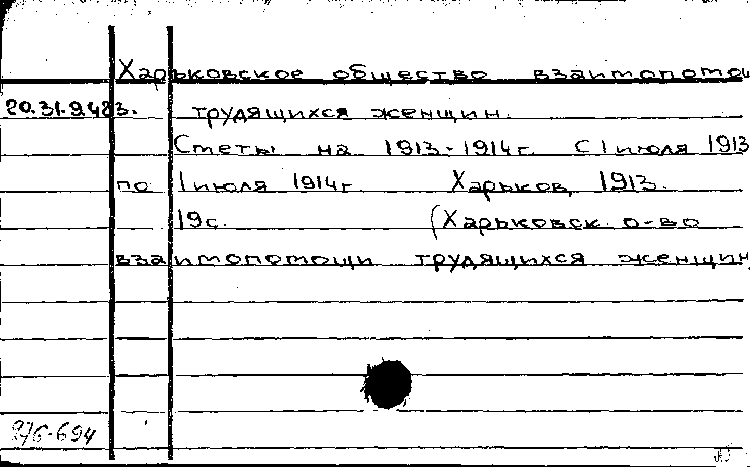 Харьковское общество взаимопомо
20.31.9.483. трудящихся женщин.
Сметы на 1913-1914г. С 1 июля 1913
по 1 июля 1914г. Харьков, 1913.
19с. (Харьковск. о-во
взаимопомощи трудящихся женщин
976-694